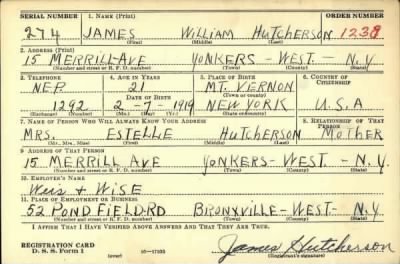 SERIAL NUMBER 1. NAME (Print) ORDER NUMBER
274 JAMES WILLIAM HUTCHERSON 1238
(First) (Middle) (Last)
2. ADDRESS (Print)
15 MERRILL-AVE YONKERS-WEST.-N.Y
(Number and street or R. F. D. number) (Town) (County) (State)
3. TELEPHONE 4. AGE IN YEARS 5. PLACE OF BIRTH 6. COUNTRY OF CITIZENSHIP
NEP. 21 MT. VERNON
DATE OF BIRTH (Town or county)
1292 2-7-1919 NEW YORK U.S.A
(Exchange) (Number) (Mo.) (Day) (Yr.) (State or country)
7. NAME OF PERSON WHO WILL ALWAYS KNOW YOUR ADDRESS 8. RELATIONSHIP OF THAT PERSON
MRS. ESTELLE HUTCHERSON MOTHER
(Mr., Mrs., Miss) (First) (Middle) (Last)
9. ADDRESS OF THAT PERSON
15 MERRILL AVE YONKERS-WEST-N.Y.
(Number and street or R. F. D. number) (Town) (County) (State)
10. EMPLOYER'S NAME
WEIS + WISE
11. PLACE OF EMPLOYMENT OR BUSINESS
52 POND FIELD-RD BRONXVILLE-WEST-N.Y
(Number and street or R. F. D. number) (Town) (County) (State)
I AFFIRM THAT I HAVE VERIFIED ABOVE ANSWERS AND THAT THEY ARE TRUE.
REGISTRATION CARD
D. S. S. FORM 1 16-17105 James Hutcherson